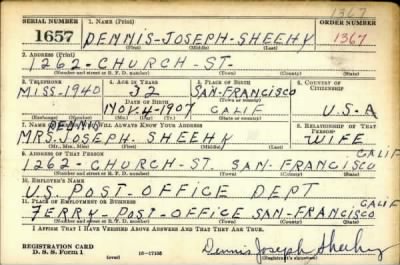 1367
SERIAL NUMBER 1. NAME (Print) ORDER NUMBER
1657 DENNIS-JOSEPH-SHEEHY 1367
2. ADDRESS (Print)
1262-CHURCH-ST.
(Number and street or R. F. D. number) (Town) (County) (State)
3. TELEPHONE 4. AGE IN YEARS 5. PLACE OF BIRTH 6. COUNTRY OF CITIZENSHIP
MISS-1940 32 SAN-FRANCISCO
(Town or county)
DATE OF BIRTH
NOV-4-1907 CALIF U.S-A
(Exchange) (Number) (Mo.) (Day) (Yr.) (State or country)
7. NAME OF PERSON WHO WILL ALWAYS KNOW YOUR ADDRESS 8. RELATIONSHIP OF THAT PERSON
DENNIS
MRS. JOSEPH-SHEEHY WIFE
(Mr., Mrs., Miss) (First) (Middle) (Last)
9. ADDRESS OF THAT PERSON CALIF
1262-CHURCH-ST. SAN-FRANCISCO
(Number and street or R. F. D. number) (Town) (County) (State)
10. EMPLOYER'S NAME
U.S. POST-OFFICE DEPT
11. PLACE OF EMPLOYMENT OR BUSINESS CALIF
FERRY-POST-OFFICE SAN-FRANCISCO
(Number and street or R. F. D. number) (Town) (County) (State)
I AFFIRM THAT I HAVE VERIFIED ABOVE ANSWERS AND THAT THEY ARE TRUE.
REGISTRATION CARD
D. S. S. Form 1 (over) Dennis Joseph Sheehy
(Registrant's signature)